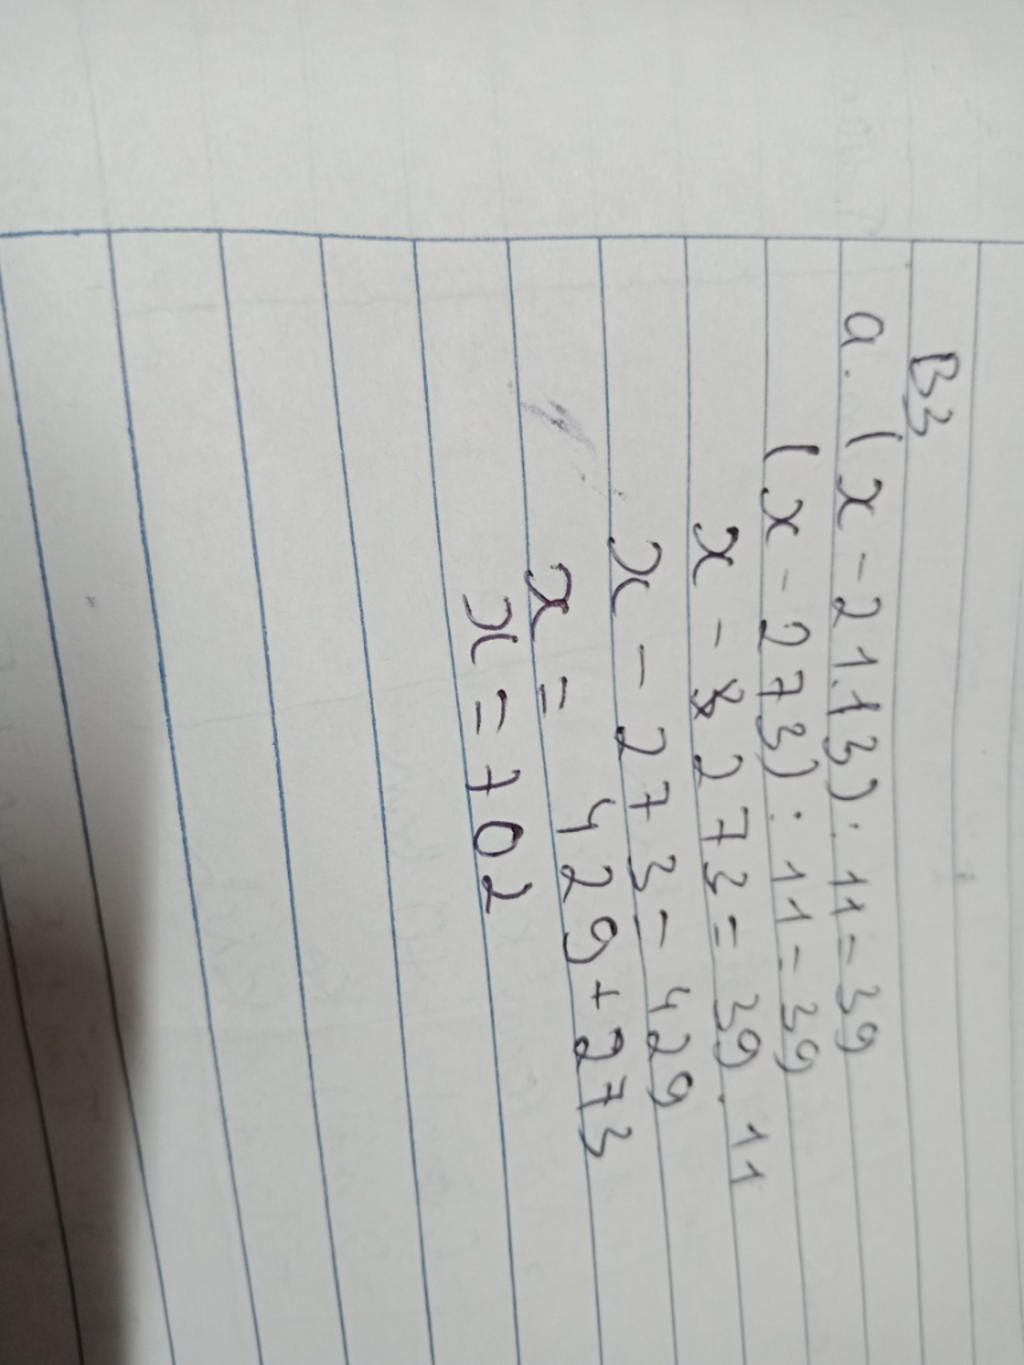 B3
a. (x - 21.13) : 11 = 39
(x - 273) : 11 = 39
x - 273 = 39 . 11
x - 273 = 429
x = 429 + 273
x = 702